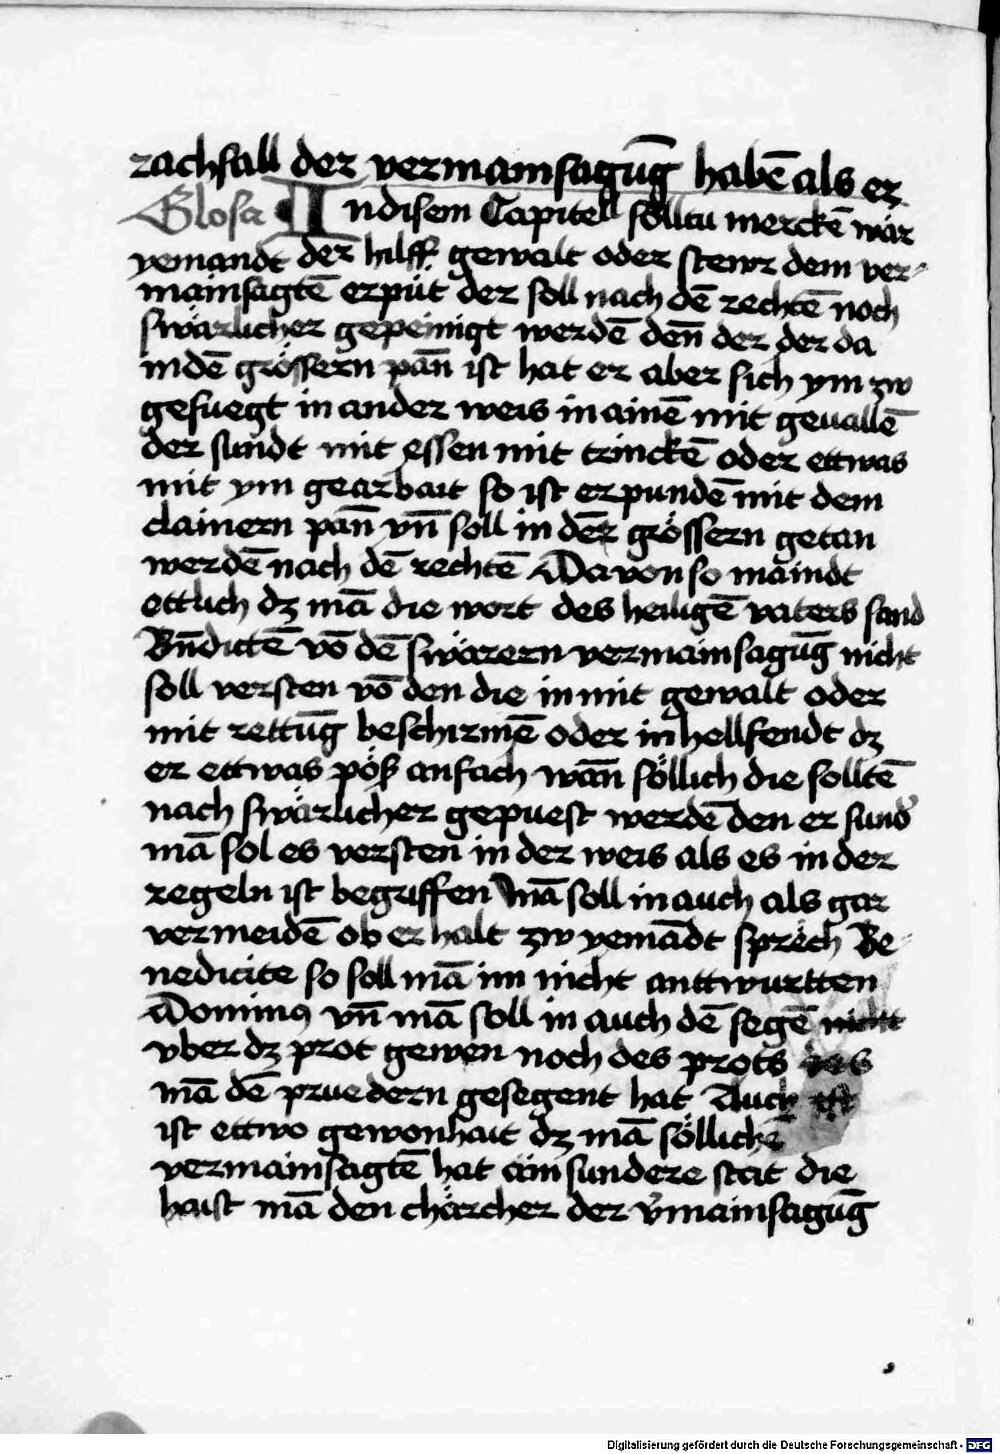 rachsall der vermainsagūg habē als er
Glosa Indisem Capitell solltu merckē wár
yemandt der hilff gewalt oder stewr dem ver-
mainsagtē erpüt der soll nach dē rechtē noch
swärlicher gepeinigt werdē den̄ der der da
in dē grössern pan̄ ist hat er aber sich ym zw
gefuegt in ander weis in ainē mit geuallē
der sundt mit essen mit trinckē oder ettwas
mit ym gearbait so ist er pundē mit dem
clainern pan̄ vn̄ soll in dēr grössern getan
werdē nach dē rechtē Da von so maindt
ettlich dz mā die wort des heiligē vaters sand
Bn̄dictē vō dē swärern vermainsagūg nicht
soll versten vō den die in mit gewalt oder
mit rettūg beschirmē oder in hellfendt dz
er ettwas pöß anfach wān söllich die solltē
nach swärlicher gepuest werdē den er sund
mā sol es versten in der weis als es in der
regeln ist begriffen Mā soll in auch als gar
vermeidē ob er halt zw yemādt sprech Be-
nedicite so soll mā im nicht anttwurtten
Dominus vn̄ mā soll in auch dē segē nicht
vber dz prot geweň noch des prots des
mā dē pruedern gesegent hat Auch
ist ettwo gewonhait dz mā söllichē
vermainsagtē hat ain sundere stat die
haist mā den chärcher der v̄mainsagūg
Digitalisierung gefördert durch die Deutsche Forschungsgemeinschaft - DFG